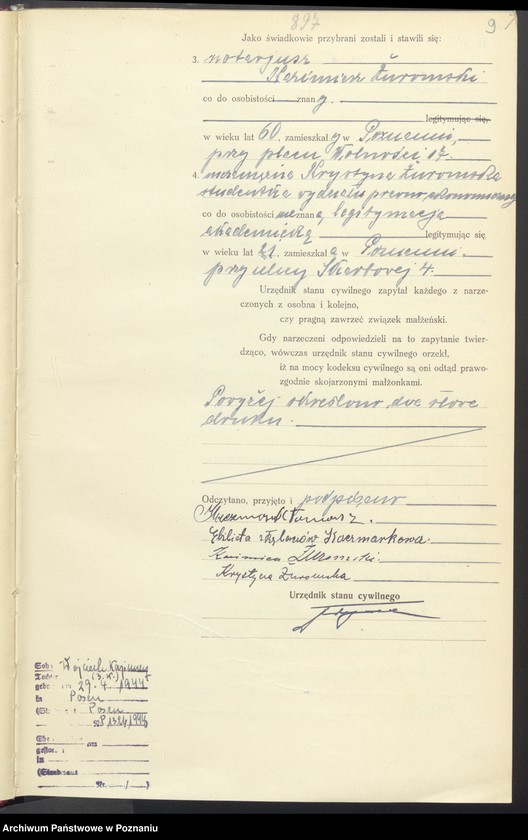 897
9
Jako świadkowie przybrani zostali i stawili się:
3. notarjusz
Kazimierz Żuromski
co do osobistości znany.
legitymując się,
w wieku lat 60, zamieszkały w Poznaniu,
przy placu Wolności 17.
4. niezamężna Krystyna Żuromska
studentka wydziału prawno-ekonomicznego
co do osobistości nieznana, legitymacją
akademicką legitymując się
w wieku lat 21, zamieszkała w Poznaniu.
przy ulicy Skarbowej 4.
Urzędnik stanu cywilnego zapytał każdego z narze-
czonych z osobna i kolejno,
czy pragną zawrzeć związek małżeński.
Gdy narzeczeni odpowiedzieli na to zapytanie twier-
dząco, wówczas urzędnik stanu cywilnego orzekł,
iż na mocy kodeksu cywilnego są oni odtąd prawo-
zgodnie skojarzonymi małżonkami.
Powyżej określono dwa słowa
druku.
Odczytano, przyjęto i podpisano
Kaczmarek
Elżbieta Kaczmarkowa
Kazimierz Żuromski.
Krystyna Żuromska
Urzędnik stanu cywilnego
Wojciech Kazimierz
29. 4. 1944
in Posen
Posen
Nr. 1324/1944
in
(Standesamt
Nr. /
Archiwum Państwowe w Poznaniu